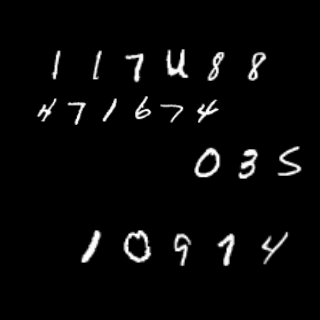 117488
471674
035
10974